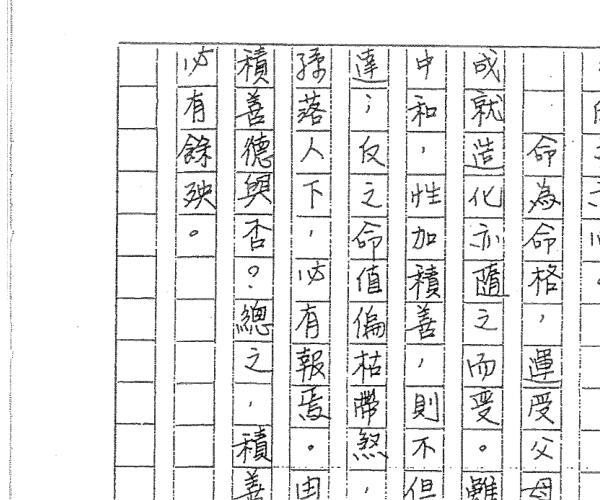 命為命格，運受父母
成就造化亦隨之而受。雖
中和，性加積善，則不但
達；反之命值偏枯帶煞，
孫落人下，必有報焉。由
積善德與否？總之，積善
必有餘殃。